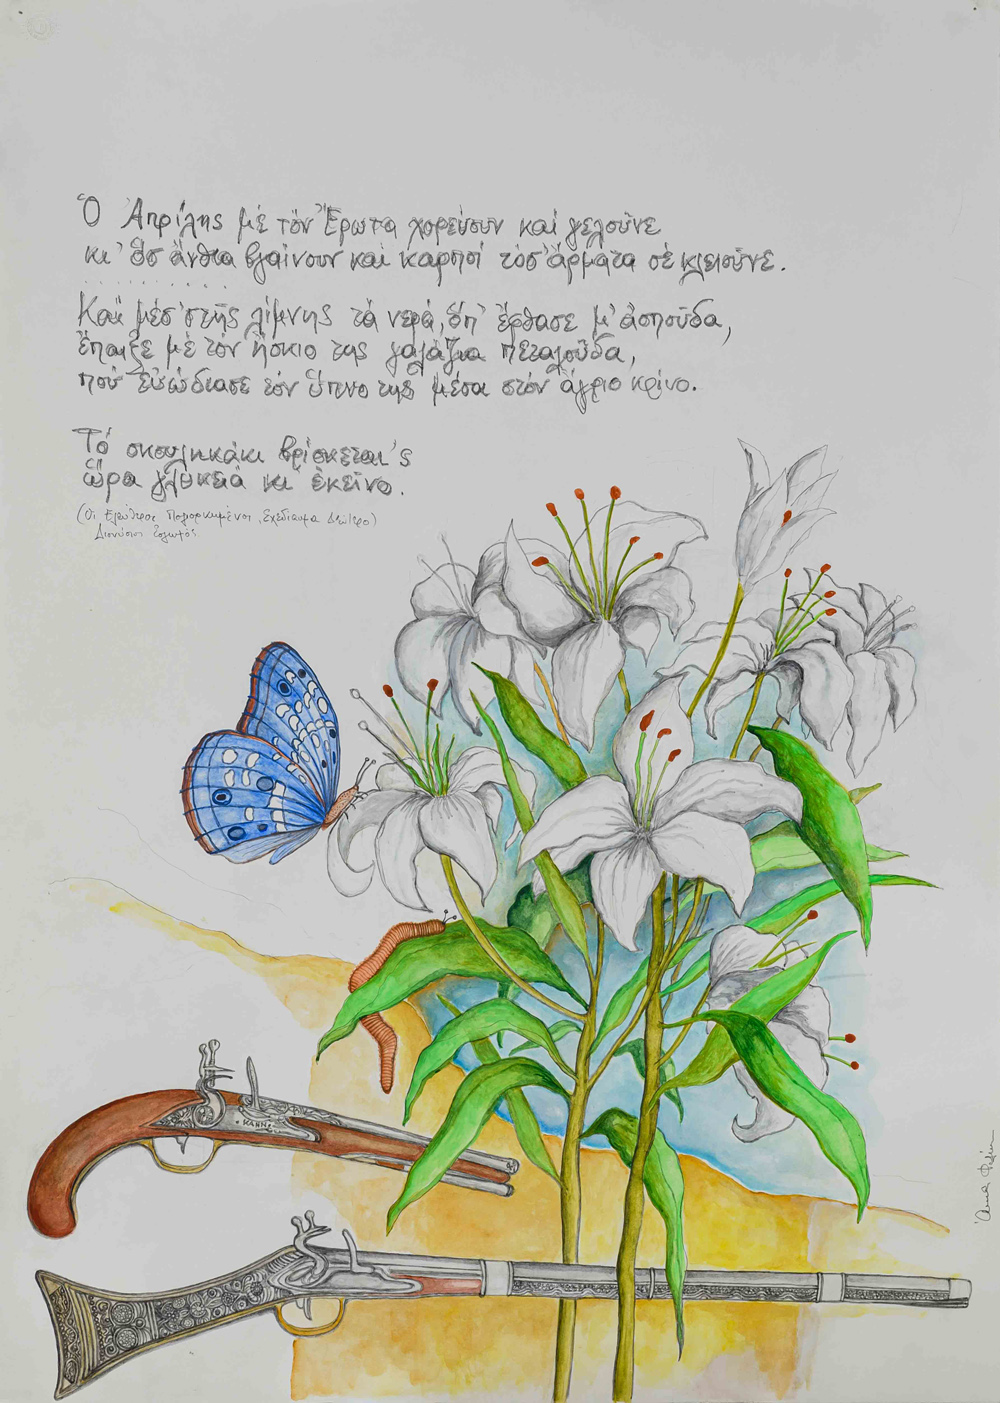 Ὁ Ἀπρίλης μέ τόν Ἔρωτα χορεύουν καί γελοῦνε
κι' ὅσ' ἄνθια βγαίνουν καί καρποί τόσ' ἄρματα σέ κλειοῦνε.
. . . . . . . . . .
Καί μέσ' στῆς λίμνης τά νερά, ὅπ' ἔφθασε μ' ἀσπούδα,
ἔπαιξε μέ τόν ἥσκιο της γαλάζια πεταλοῦδα,
πού εὐώδιασε τόν ὕπνο της μέσα στόν ἄγριο κρίνο.
Τό σκουληκάκι βρίσκεται 'ς
ὥρα γλυκειά κι ἐκεῖνο.
(Οἱ Ἐλεύθεροι Πολιορκημένοι, Σχεδίασμα Δεύτερο)
Διονύσιος Σολωμός
ΚΑΝΝ